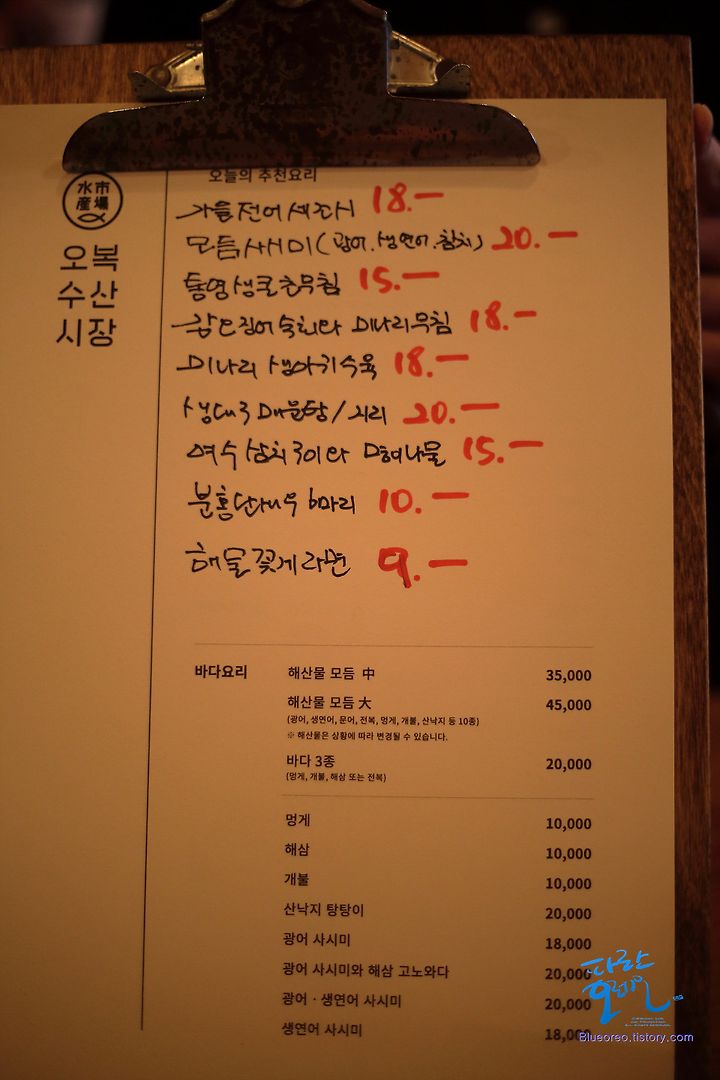 오늘의 추천요리
水市
産場
오복
수산
시장
가을전어세꼬시 18.—
모듬사시미(광어.생연어.참치) 20.—
통영생굴초무침 15.—
갑오징어숙회와 미나리무침 18.—
미나리 생아귀수육 18.—
생대구매운탕/지리 20.—
여수삼치구이와 방풍나물 15.—
분홍단새우 6마리 10.—
해물꽃게라면 9.—
바다요리
해산물 모듬 中 35,000
해산물 모듬 大 45,000
(광어, 생연어, 문어, 전복, 멍게, 개불, 산낙지 등 10종)
※ 해산물은 상황에 따라 변경될 수 있습니다.
바다 3종 20,000
(멍게, 개불, 해삼 또는 전복)
멍게 10,000
해삼 10,000
개불 10,000
산낙지 탕탕이 20,000
광어 사시미 18,000
광어 사시미와 해삼 고노와다 20,000
광어 · 생연어 사시미 20,000
생연어 사시미 18,000
파란
오레오
Blueoreo.tistory.com